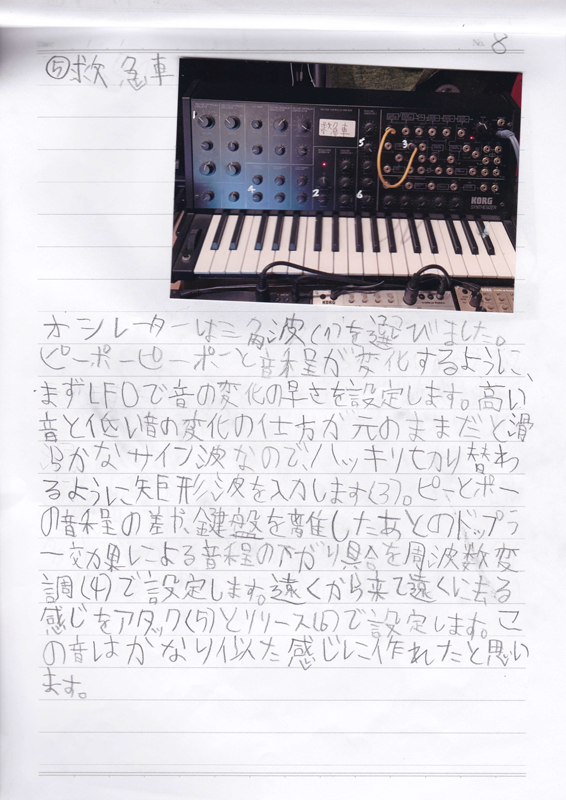 No. 8
⑤救急車
救急車
1
5
3
4
2
6
KORG
オシレーターは三角波(1)を選びました。
ピーポーピーポーと音程が変化するように、
まずLFOで音の変化の早さを設定します。高い
音と低い音の変化の仕方が元のままだと滑
らかなサイン波なので、ハッキリ切り替わ
るように矩形波を入力します(3)。ピーとポー
の音程の差や、鍵盤を離したあとのドップラ
ー効果による音程の下がり具合を周波数変
調(4)で設定します。遠くから来て遠くに去る
感じをアタック(5)とリリース(6)で設定します。こ
の音はかなり似た感じに作れたと思い
ます。